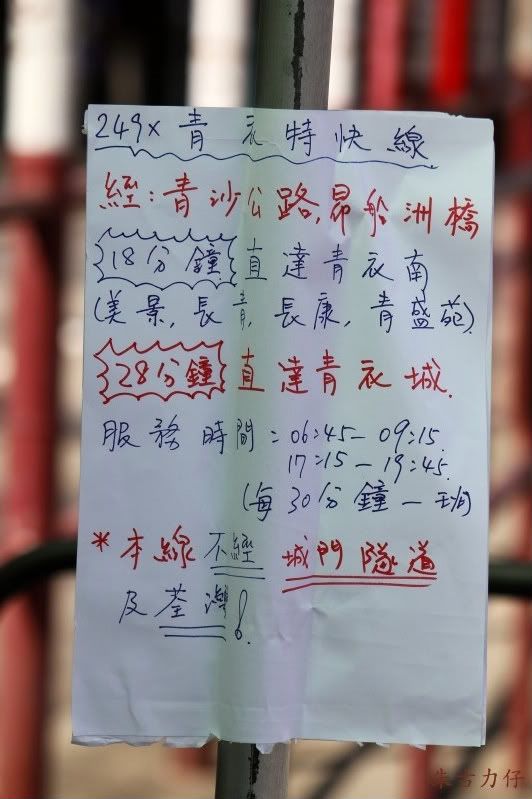 249x 青衣特快線
經:青沙公路,昂船洲橋
18分鐘 直達青衣南
(美景,長青,長康,青盛苑)
28分鐘 直達青衣城.
服務時間:06:45-09:15.
17:15-19:45.
(每30分鐘一班)
*本線不經 城門隧道
及荃灣!
朱古力仔